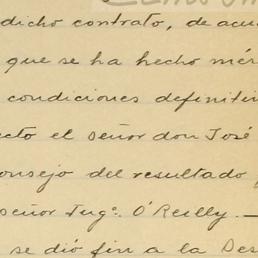 dicho contrato, de acue
que se ha hecho mér
condiciones definitiv
cto el señor don José
onsejo del resultado
señor Ingº. O'Reilly.—
se dió fin a la Des